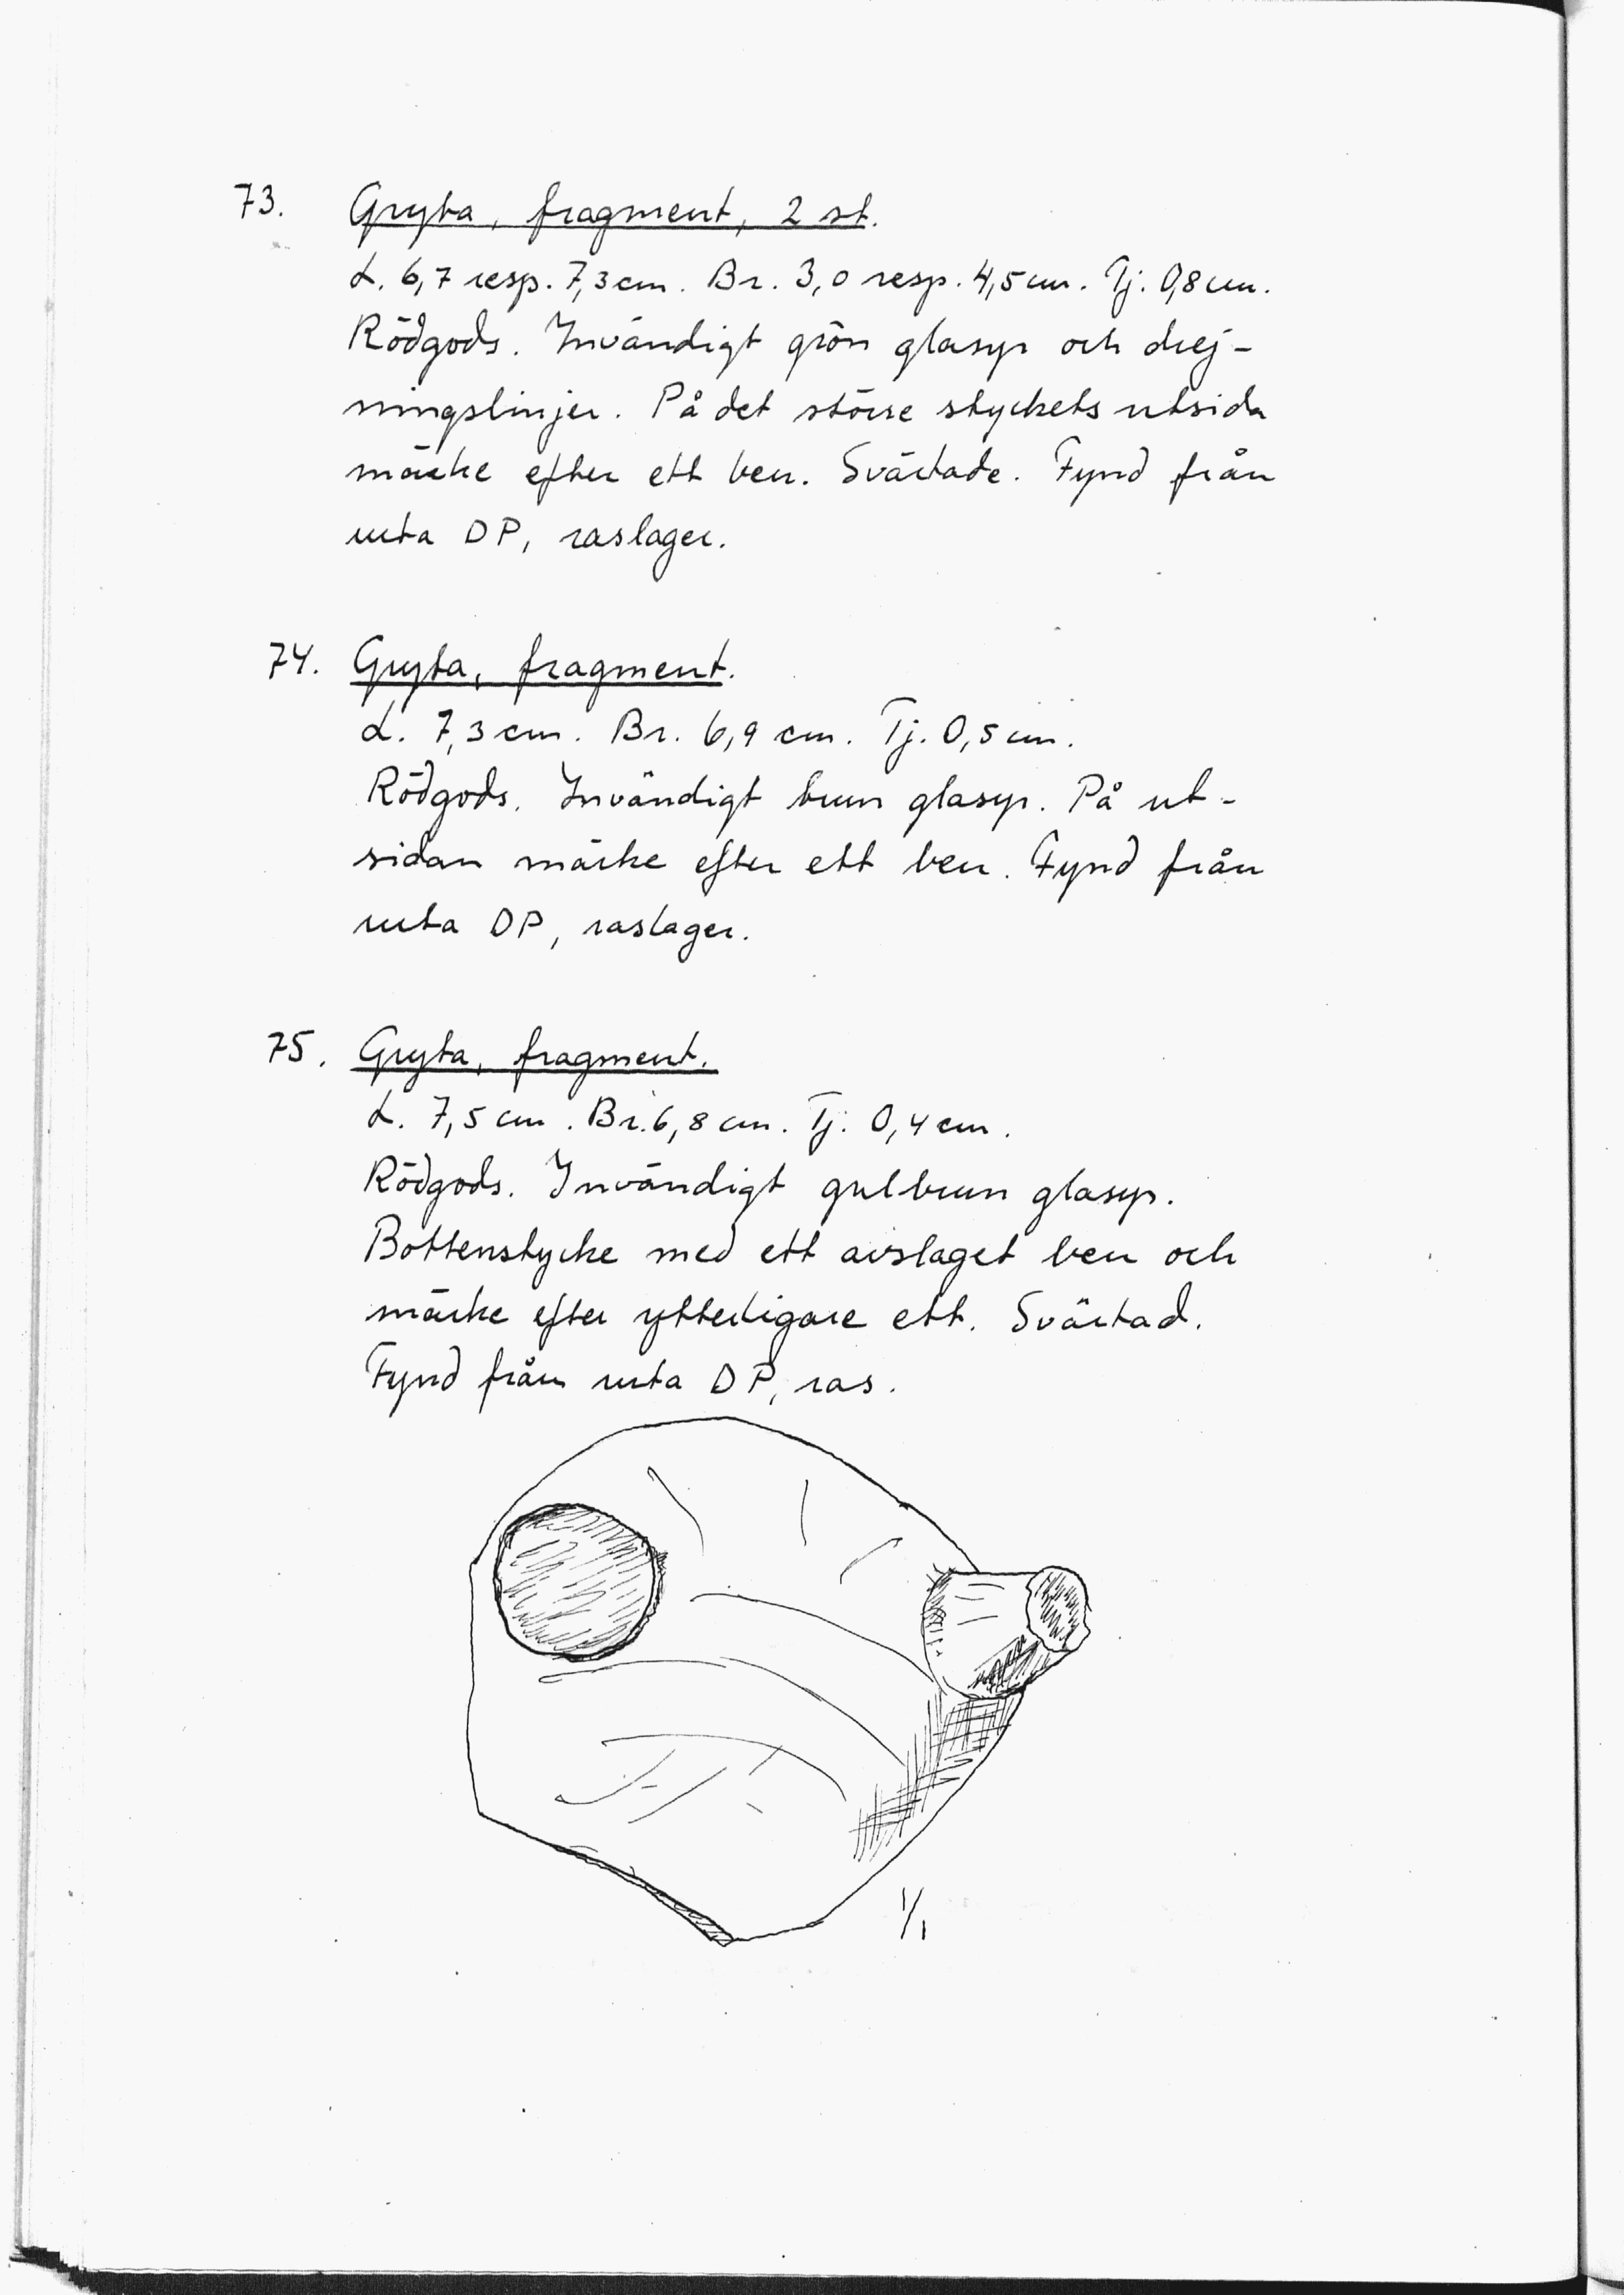 73. Gryta, fragment, 2 st.
L. 6,7 resp. 7,3 cm. Br. 3,0 resp. 4,5 cm. Tj. 0,8 cm.
Rödgods. Invändigt grön glasyr och drej-
ningslinjer. På det större styckets utsida
märke efter ett ben. Svärtade. Fynd från
ruta DP, raslager.
74. Gryta, fragment.
L. 7,3 cm. Br. 6,9 cm. Tj. 0,5 cm.
Rödgods. Invändigt brun glasyr. På ut-
sidan märke efter ett ben. Fynd från
ruta DP, raslager.
75. Gryta, fragment.
L. 7,5 cm. Br. 6,8 cm. Tj. 0,4 cm.
Rödgods. Invändigt gulbrun glasyr.
Bottenstycke med ett avslaget ben och
märke efter ytterligare ett. Svärtad.
Fynd från ruta DP, ras.
1/1